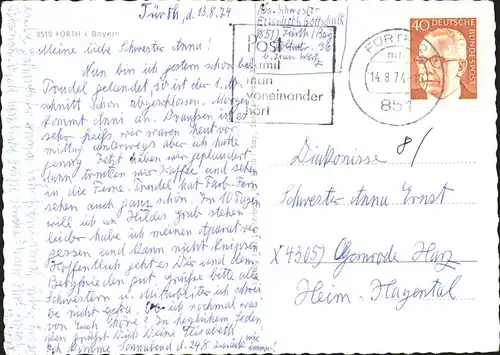 8510 FÜRTH i. Bayern
Fürth, d. 13.8.74
Meine liebe Schwester Anna!
Nun bin ich gestern schon bei
Trudel gelandet, so ist der 1. Ab-
schnitt schon abgeschlossen. Morgen
kommt Anni an. Draußen ist es
sehr heiß, wir waren heut vor
mittag unterwegs aber ich hatte
genug. Jetzt haben wir geplundert
dann trinken wir Kaffee und sehen
in die Ferne. Trudel hat Farb-Fern
sehen auch ganz schön. Im 10 Tagen
will ich an Hildes Grab stehen
leider habe ich meinen Aparat ver-
gessen und kann nicht knipsen
Hoffentlich geht es Dir und dem
gut. Grüße bitte alle
Schwestern u. Mitarbeiter ich schrei
be nicht extra. Ob ich nochmal was
von Euch höre? In herzlichem Geden
ken grüßt Dich Deine Elisabeth
Ich komme Sonnabend d. 24.8 zurück wie
immer!
Abs. Schwester
Elisabeth Gottschalk
(851) Fürth/Bay
36
b. Frau
Post
damit
man
voneinander
hört
FÜRTH
14.8.74
851
40 DEUTSCHE
BUNDESPOST
8/
Diakonisse
Schwester Anna Ernst
X 4305) Gernrode Harz
Heim-Hagental